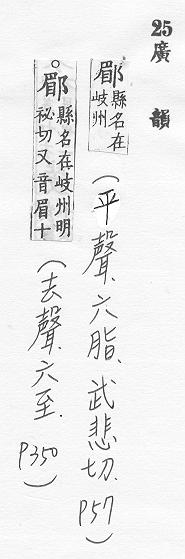 25廣韻
郿縣名在岐州（平聲、六脂、武悲切、P57）
。郿縣名在岐州明祕切又音眉十（去聲、六至、P350）